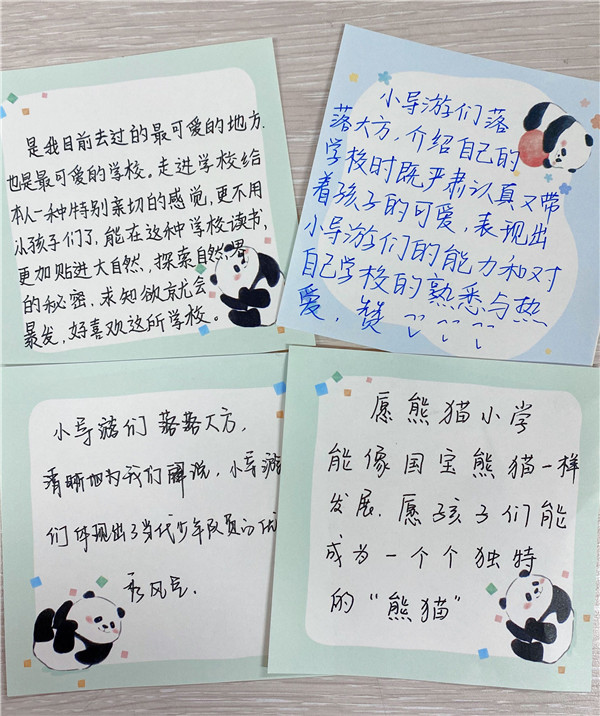 是我目前去过的最可爱的地方.
也是最可爱的学校。走进学校给
本人一种特别亲切的感觉,更不用
从孩子们了,能在这种学校读书,
更加贴进大自然,探索自然界
的秘密.求知欲就会
暴发,好喜欢这所学校。
小导游们落
落大方,介绍自己的
学校时既严肃认真又带
着孩子的可爱,表现出
小导游们的能力和对
自己学校的熟悉与热
爱,赞
小导游们落落大方,
清晰地为我们解说,小导游
们体现出了当代少年队员的优
秀风气.
愿熊猫小学
能像国宝熊猫一样
发展.愿孩子们能
成为一个个独特
的“熊猫”